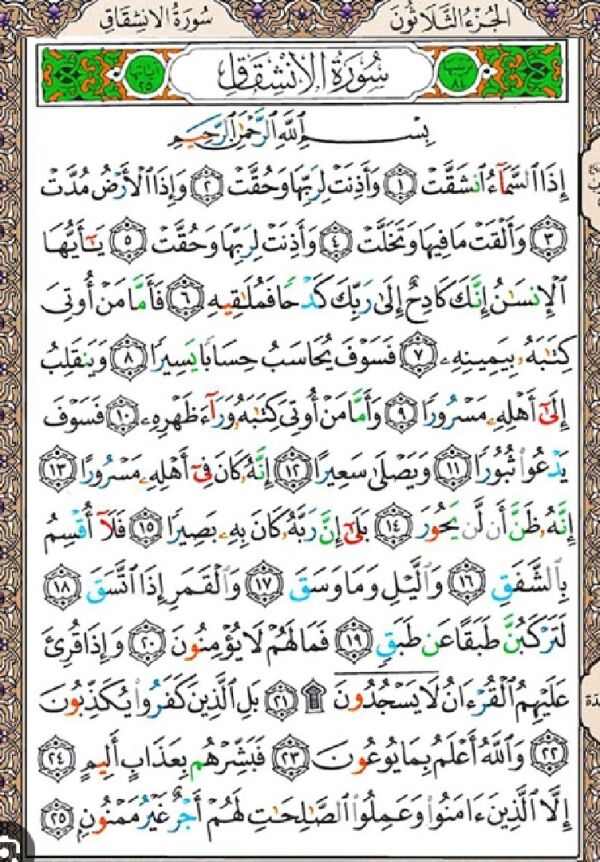 سُورَةُ الانشِقَاقِ الجُزْءُ الثَّلَاثُونَ
سُورَةُ الِانشِقَاقِ
بِسْمِ ٱللَّهِ ٱلرَّحْمَٰنِ ٱلرَّحِيمِ
إِذَا ٱلسَّمَآءُ ٱنشَقَّتْ ١ وَأَذِنَتْ لِرَبِّهَا وَحُقَّتْ ٢ وَإِذَا ٱلْأَرْضُ مُدَّتْ
٣ وَأَلْقَتْ مَا فِيهَا وَتَخَلَّتْ ٤ وَأَذِنَتْ لِرَبِّهَا وَحُقَّتْ ٥ يَٰٓأَيُّهَا
ٱلْإِنسَٰنُ إِنَّكَ كَادِحٌ إِلَىٰ رَبِّكَ كَدْحًا فَمُلَٰقِيهِ ٦ فَأَمَّا مَنْ أُوتِىَ
كِتَٰبَهُۥ بِيَمِينِهِۦ ٧ فَسَوْفَ يُحَاسَبُ حِسَابًا يَسِيرًا ٨ وَيَنقَلِبُ
إِلَىٰٓ أَهْلِهِۦ مَسْرُورًا ٩ وَأَمَّا مَنْ أُوتِىَ كِتَٰبَهُۥ وَرَآءَ ظَهْرِهِۦ ١٠ فَسَوْفَ
يَدْعُوا۟ ثُبُورًا ١١ وَيَصْلَىٰ سَعِيرًا ١٢ إِنَّهُۥ كَانَ فِىٓ أَهْلِهِۦ مَسْرُورًا ١٣
إِنَّهُۥ ظَنَّ أَن لَّن يَحُورَ ١٤ بَلَىٰٓ إِنَّ رَبَّهُۥ كَانَ بِهِۦ بَصِيرًا ١٥ فَلَآ أُقْسِمُ
بِٱلشَّفَقِ ١٦ وَٱلَّيْلِ وَمَا وَسَقَ ١٧ وَٱلْقَمَرِ إِذَا ٱتَّسَقَ ١٨
لَتَرْكَبُنَّ طَبَقًا عَن طَبَقٍ ١٩ فَمَا لَهُمْ لَا يُؤْمِنُونَ ٢٠ وَإِذَا قُرِئَ
عَلَيْهِمُ ٱلْقُرْءَانُ لَا يَسْجُدُونَ ۩ ٢١ بَلِ ٱلَّذِينَ كَفَرُوا۟ يُكَذِّبُونَ
٢٢ وَٱللَّهُ أَعْلَمُ بِمَا يُوعُونَ ٢٣ فَبَشِّرْهُم بِعَذَابٍ أَلِيمٍ ٢٤
إِلَّا ٱلَّذِينَ ءَامَنُوا۟ وَعَمِلُوا۟ ٱلصَّٰلِحَٰتِ لَهُمْ أَجْرٌ غَيْرُ مَمْنُونٍۭ ٢٥